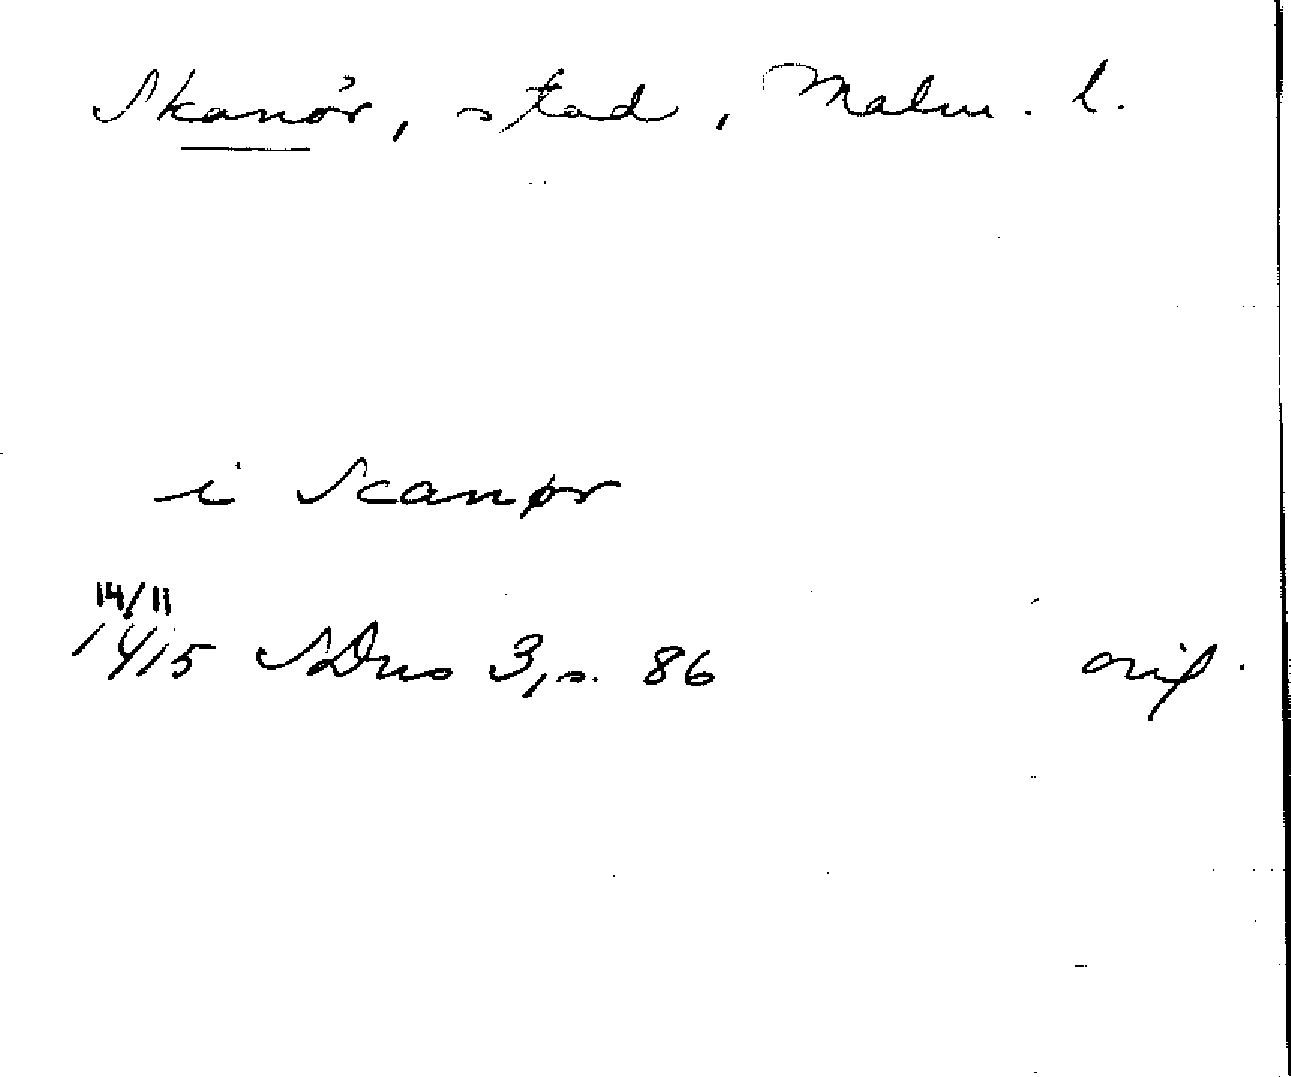 Skanör, stad, Malm. l.
i Scanør
14/11
1415 SDns 3, s. 86 orig.